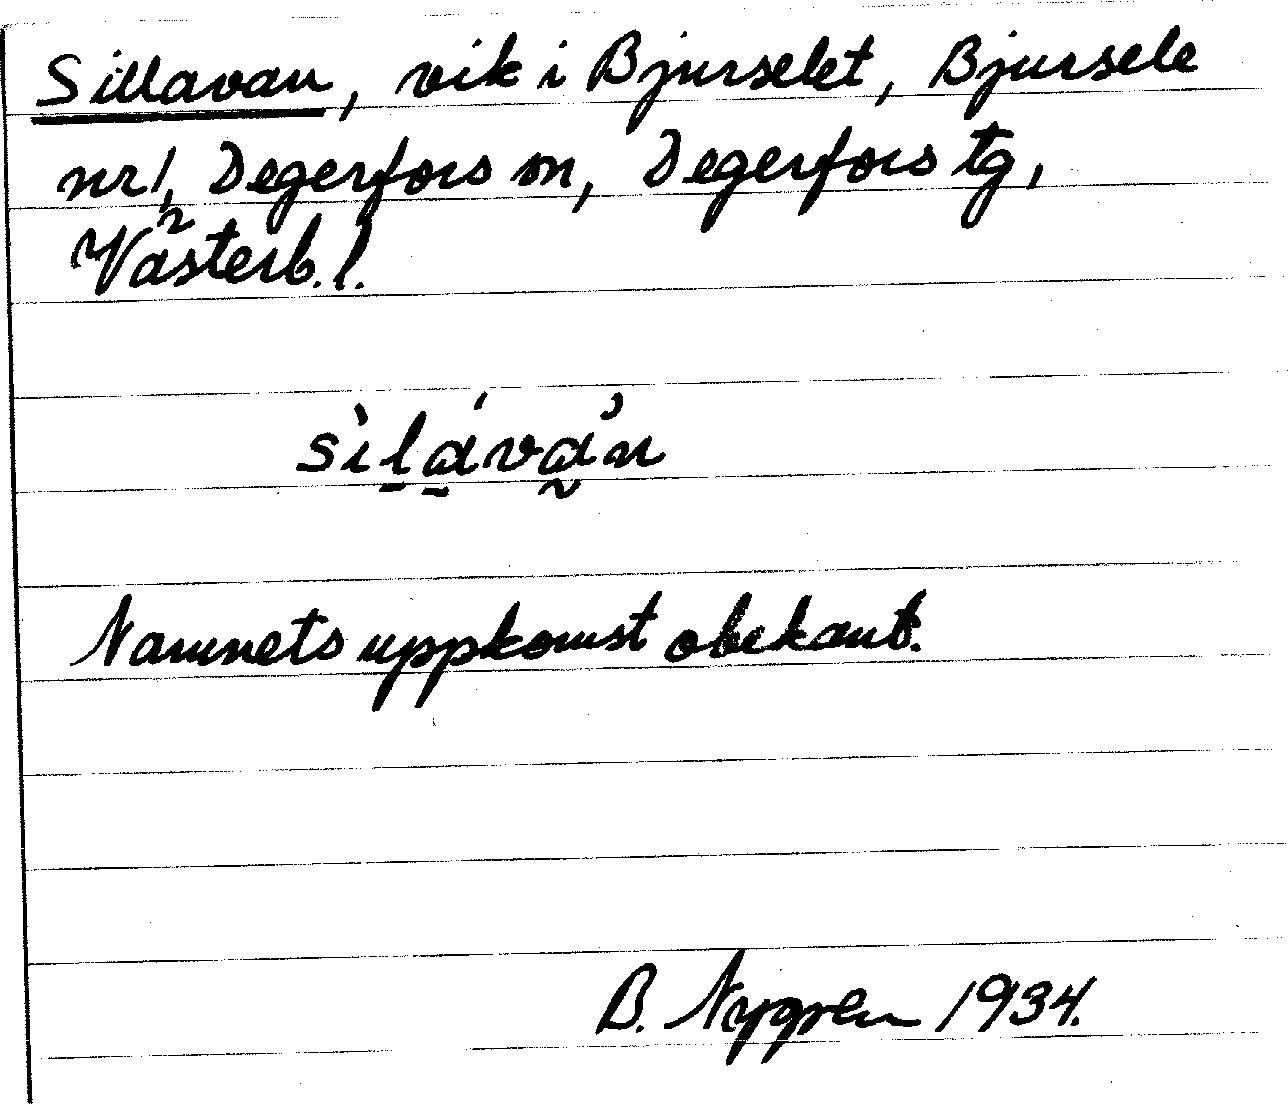 Sillavan, vik i Bjurselet, Bjursele
nr1, Degerfors sn, Degerfors tg,
Västerb. l.
Namnets uppkomst obekant.
B. Nygren 1934.